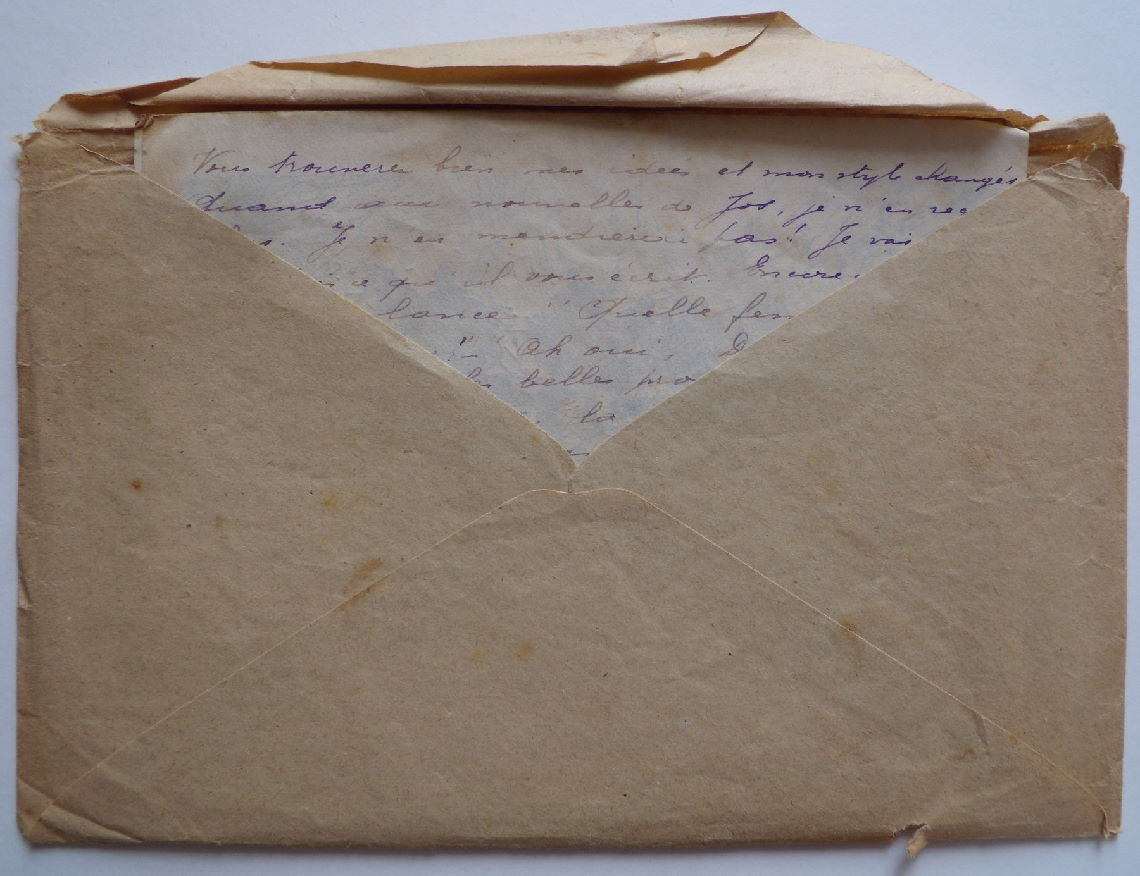 Vous trouverez bien mes idées et mon style changés
Quand aux nouvelles de Jos, je n'en rec
Je n'en mendierai pas! Je vai
ce qu'il vous écrit. Encore
lance" Quelle fem
!" Ah oui, D
belles pro
la